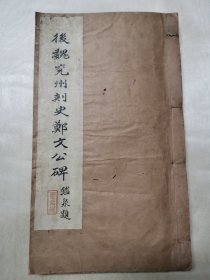 後魏兖州刺史鄭文公碑
鑑泉題